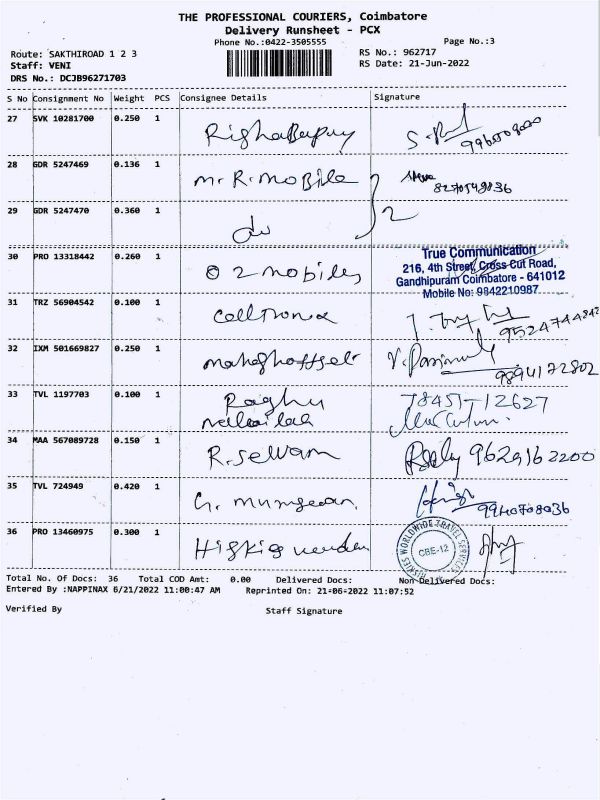 THE PROFESSIONAL COURIERS, Coimbatore
Delivery Runsheet - PCX
Phone No.:0422-3505555 Page No.:3
Route: SAKTHIROAD 1 2 3 RS No.: 962717
Staff: VENI RS Date: 21-Jun-2022
DRS No.: DCJB96271703
S No Consignment No Weight PCS Consignee Details Signature
27 SVK 10281700 0.250 1
28 GDR 5247469 0.136 1 M.R. Mobile 8270549836
29 GDR 5247470 0.360 1 do 2
30 PRO 13318442 0.260 1 O 2 mobiles
True Communication
216, 4th Street, Cross Cut Road,
Gandhipuram Coimbatore - 641012
Mobile No: 9842210987
31 TRZ 56904542 0.100 1 Celltronix
32 IXM 501669827 0.250 1 9894172802
33 TVL 1197703 0.100 1 Raghu 78451-12627
34 MAA 567089728 0.150 1 R. Selvam 9629162200
35 TVL 724949 0.420 1 G. Murugesan 9940708036
36 PRO 13460975 0.300 1
WORLDWIDE TRAVEL SERVICES
CBE-12
Total No. Of Docs: 36 Total COD Amt: 0.00 Delivered Docs: Non Delivered Docs:
Entered By :NAPPINAX 6/21/2022 11:00:47 AM Reprinted On: 21-06-2022 11:07:52
Verified By Staff Signature